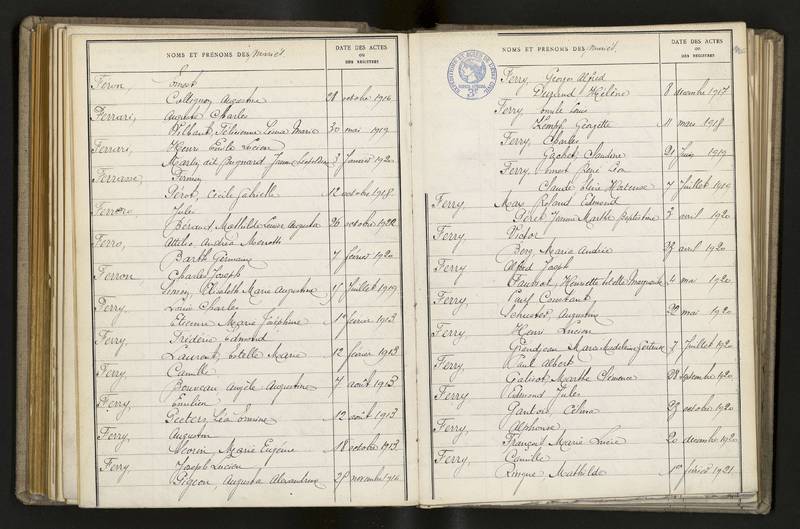 NOMS ET PRÉNOMS DES mariés
DATE DES ACTES
OU
DES REGISTRES
Feron, Ernest
Collignon, Augustine 28 octobre 1916
Ferrari, Auguste Charles
Wilbaut, Félicienne Louise Marie 30 mai 1919
Ferrari, Henri Emile Lucien
Marly dit Bugnard 3 Janvier 1920
Ferrasse, Firmin
Pérot, Cécile Gabrielle 12 octobre 1918
Ferrero, Jules
Béraud, Mathilde Louise Augusta 26 octobre 1922
Ferro, Attilio Andréa
Barth Germaine 7 février 1920
Ferron, Charles Joseph
Elisabeth Marie Augustine 15 Juillet 1919
Ferry, Louis Charles
Etienne Marie Joséphine 1er février 1913
Ferry, Frédéric Edmond
Laurent, Estelle Marie 12 février 1913
Ferry, Camille
Bouveau Angèle Augustine 7 août 1913
Ferry, Emilien
Peeters, Léa 12 août 1913
Ferry, Augustin
Marie Eugénie 18 octobre 1913
Ferry, Joseph Lucien
Pigeon, Augusta Alexandrine 25 novembre 1916
NOMS ET PRÉNOMS DES mariés
DATE DES ACTES
OU
DES REGISTRES
Ferry, Georges Alfred
Hélène 8 décembre 1917
Ferry, Emile Louis
Kempf, Georgette 11 mars 1918
Ferry, Charles
Gachot, 21 Juin 1919
Ferry, Ernest René Léon
Claude 7 Juillet 1919
Ferry, Marc Roland Edmond
Péret Jeanne Marthe Baptistine 3 avril 1920
Ferry, Victor
Berg, Marie Andrée 27 avril 1920
Ferry, Alfred Joseph
Henriette Estelle Marguerite 4 mai 1920
Ferry, Paul Constant
Schuester, Augustine 22 mai 1920
Ferry, Henri Lucien
Grandjean Marie Madeleine 7 Juillet 1920
Ferry, Paul Albert
Galisot, Marthe Clémence 28 septembre 1920
Ferry, Edmond Jules
Célina 23 octobre 1920
Ferry, Alphonse
François Marie Lucie 20 décembre 1920
Ferry, Camille
Mathilde 1er février 1921